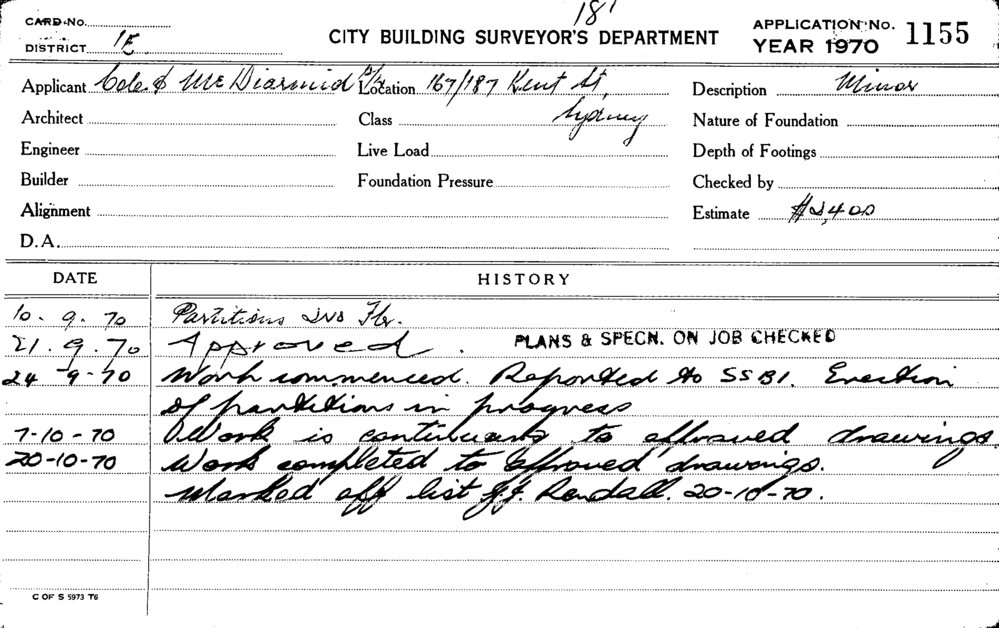 181
CARD No.
DISTRICT 1E
CITY BUILDING SURVEYOR'S DEPARTMENT
APPLICATION No. 1155
YEAR 1970
Applicant Cole & McDiarmid P/L Location 167/187 Kent St, Description Minor
Architect Class Sydney Nature of Foundation
Engineer Live Load Depth of Footings
Builder Foundation Pressure Checked by
Alignment Estimate $2,400
D.A.
DATE HISTORY
10. 9. 70 Partitions Flr.
21. 9. 70 Approved. PLANS & SPECN. ON JOB CHECKED
24 -9-70 Work commenced. Reported to SSBI. Erection
of partitions in progress
7-10-70 Work is continuing to approved drawings
20-10-70 Work completed to approved drawings.
Marked off list J.J. Randall. 20-10-70.
C OF S 5973 T6